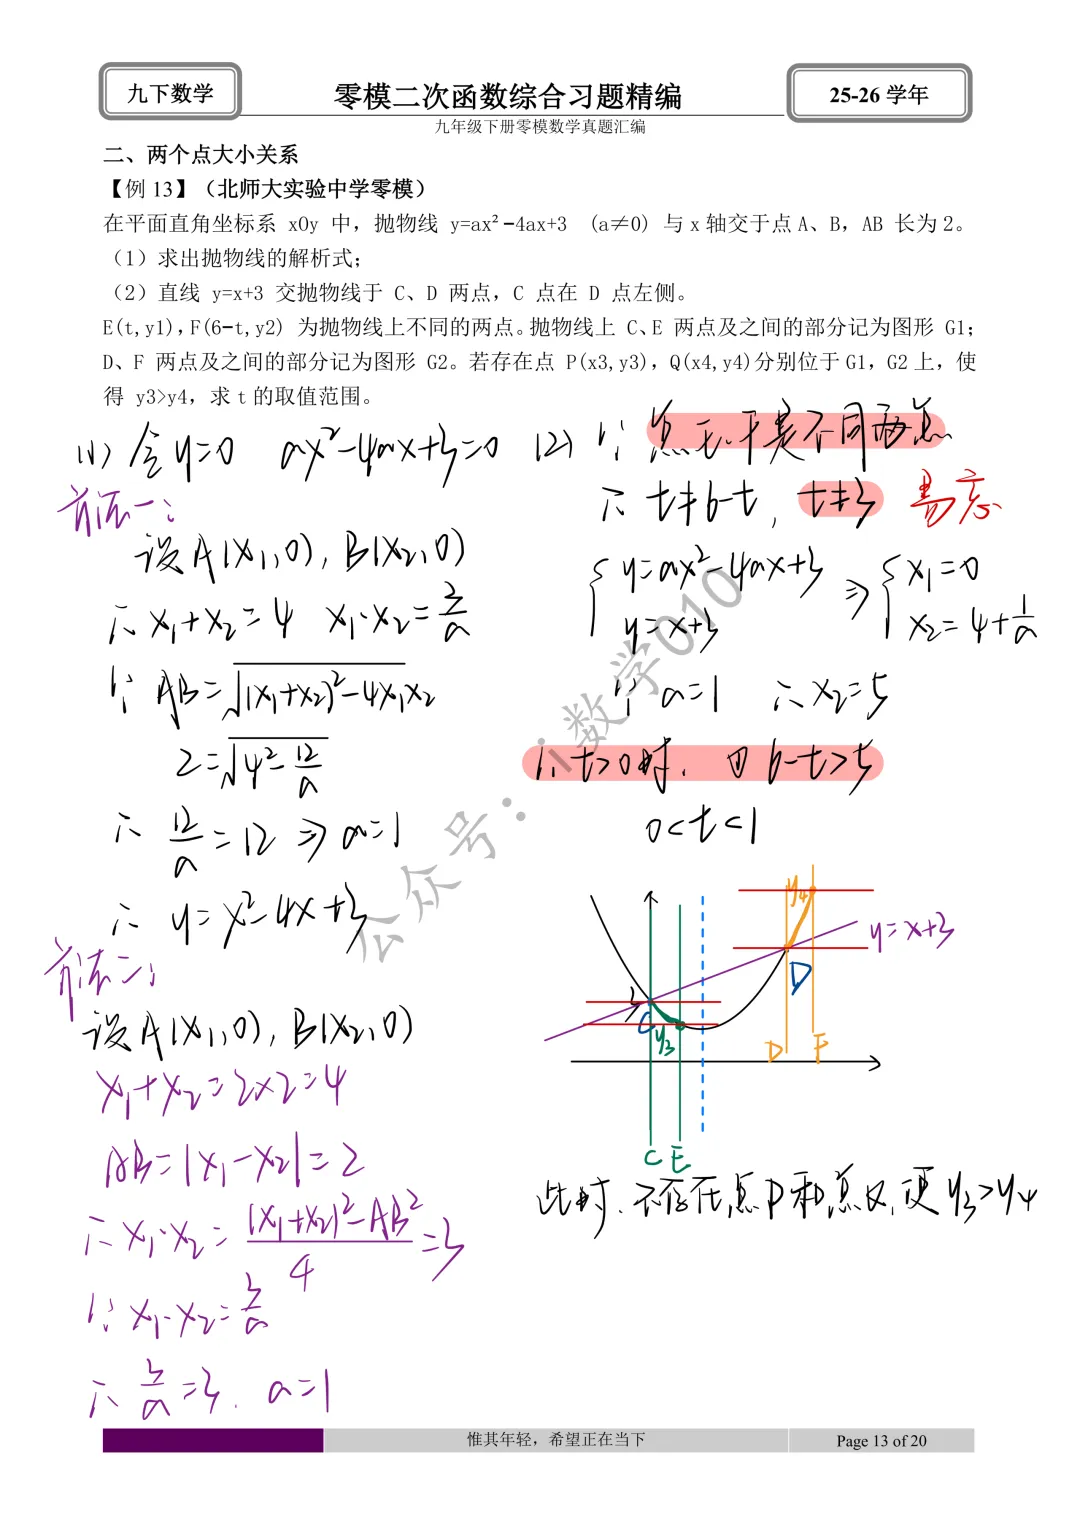 九下数学
零模二次函数综合习题精编
25-26 学年
九年级下册零模数学真题汇编
二、两个点大小关系
【例 13】（北师大实验中学零模）
在平面直角坐标系 xOy 中，抛物线 y=ax²-4ax+3 (a≠0) 与 x 轴交于点 A、B，AB 长为 2。
（1）求出抛物线的解析式；
（2）直线 y=x+3 交抛物线于 C、D 两点，C 点在 D 点左侧。
E(t,y1),F(6-t,y2) 为抛物线上不同的两点。抛物线上 C、E 两点及之间的部分记为图形 G1；
D、F 两点及之间的部分记为图形 G2。若存在点 P(x3,y3)，Q(x4,y4)分别位于 G1，G2 上，使
得 y3>y4，求 t 的取值范围。
(1) 令 y=0 ax²-4ax+3=0
方法一：
设A(x₁,0), B(x₂,0)
∴ x₁+x₂=4 x₁·x₂=3/a
∵ AB=√(x₁+x₂)²-4x₁x₂
2=√4²-12/a
∴ 12/a=12 ⇒ a=1
∴ y=x²-4x+3
方法二：
设A(x₁,0), B(x₂,0)
x₁+x₂=2×2=4
AB=|x₁-x₂|=2
∴ x₁·x₂=(x₁+x₂)²-AB²/4=3
∵ x₁·x₂=3/a
∴ 3/a=3, a=1
(2) ∵ 点E,F是不同两点
∴ t≠6-t, t≠3 易忘
{y=ax²-4ax+3 ⇒ {x₁=0
y=x+3 x₂=4+1/a
∵ a=1 ∴ x₂=5
1. t>0时, ① 6-t>5
0<t<1
y₄
y=x+3
D
3
C
y₃
D F
C E
此时, 不存在点P和点Q, 使 y₃>y₄
公众号：i数学010
惟其年轻，希望正在当下
Page 13 of 20